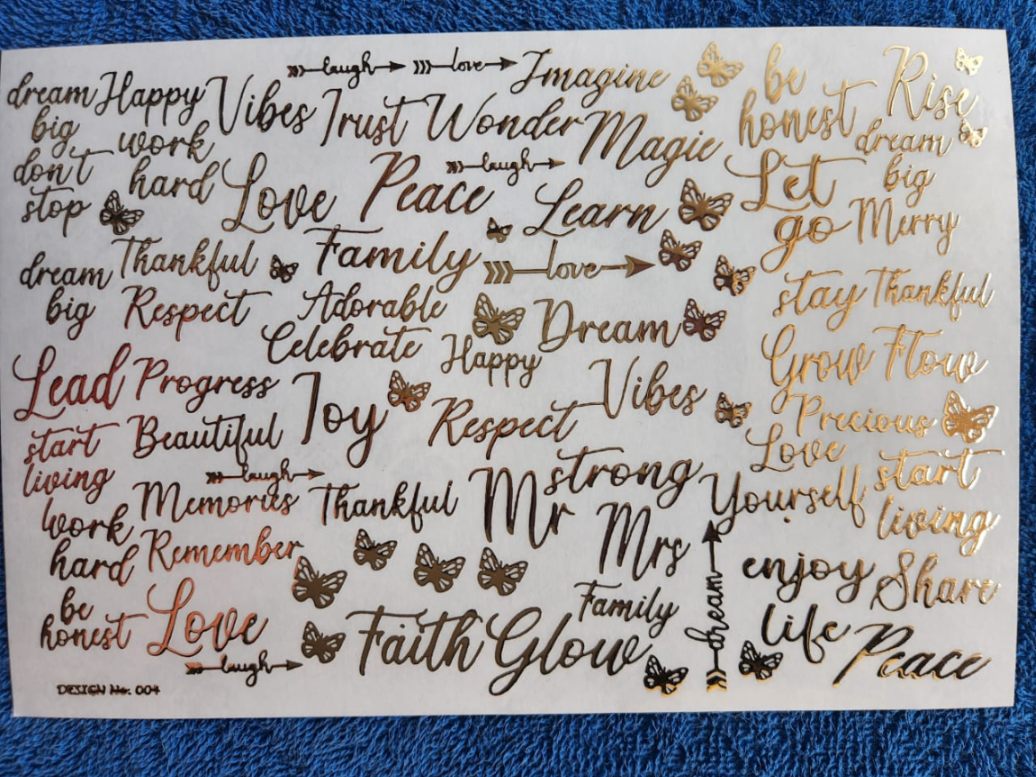 laugh love Imagine be Rise
dream Happy Vibes Trust Wonder Magic honest
big work dream
don't hard Love Peace laugh Let big
stop Learn go Merry
dream Thankful Family love
big Respect Adorable Dream stay Thankful
Celebrate Happy Grow Flow
Lead Progress Joy Vibes
start Beautiful Respect Precious
living laugh strong Love start
Memories Thankful Mr Yourself living
work Mrs
hard Remember enjoy Share
be Love Family dream life
honest laugh Faith Glow Peace
DESIGN No. 004